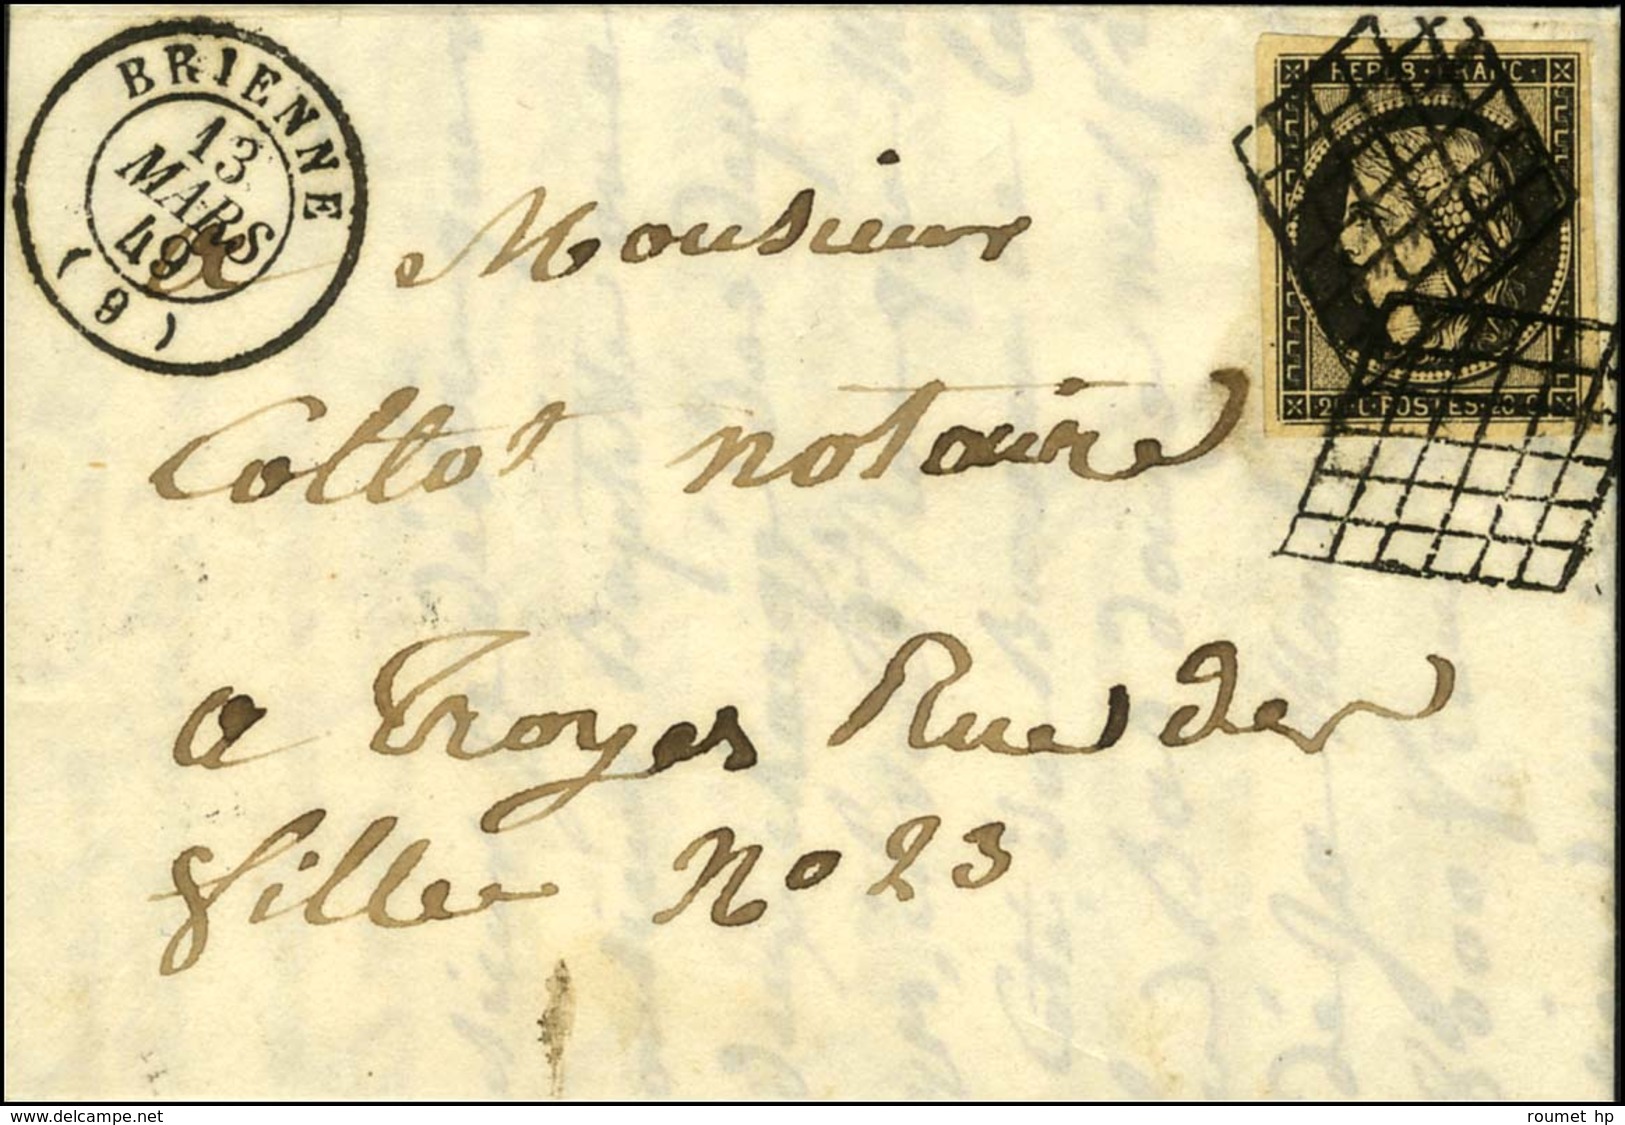 BRIENNE
13
MARS
49
(9)
REPUB·FRANC·
20·C·POSTES·20·C
a Monsieur
Collot notaire
a Troyes Rue der
filler No 23
www.delcampe.net
roumet hp